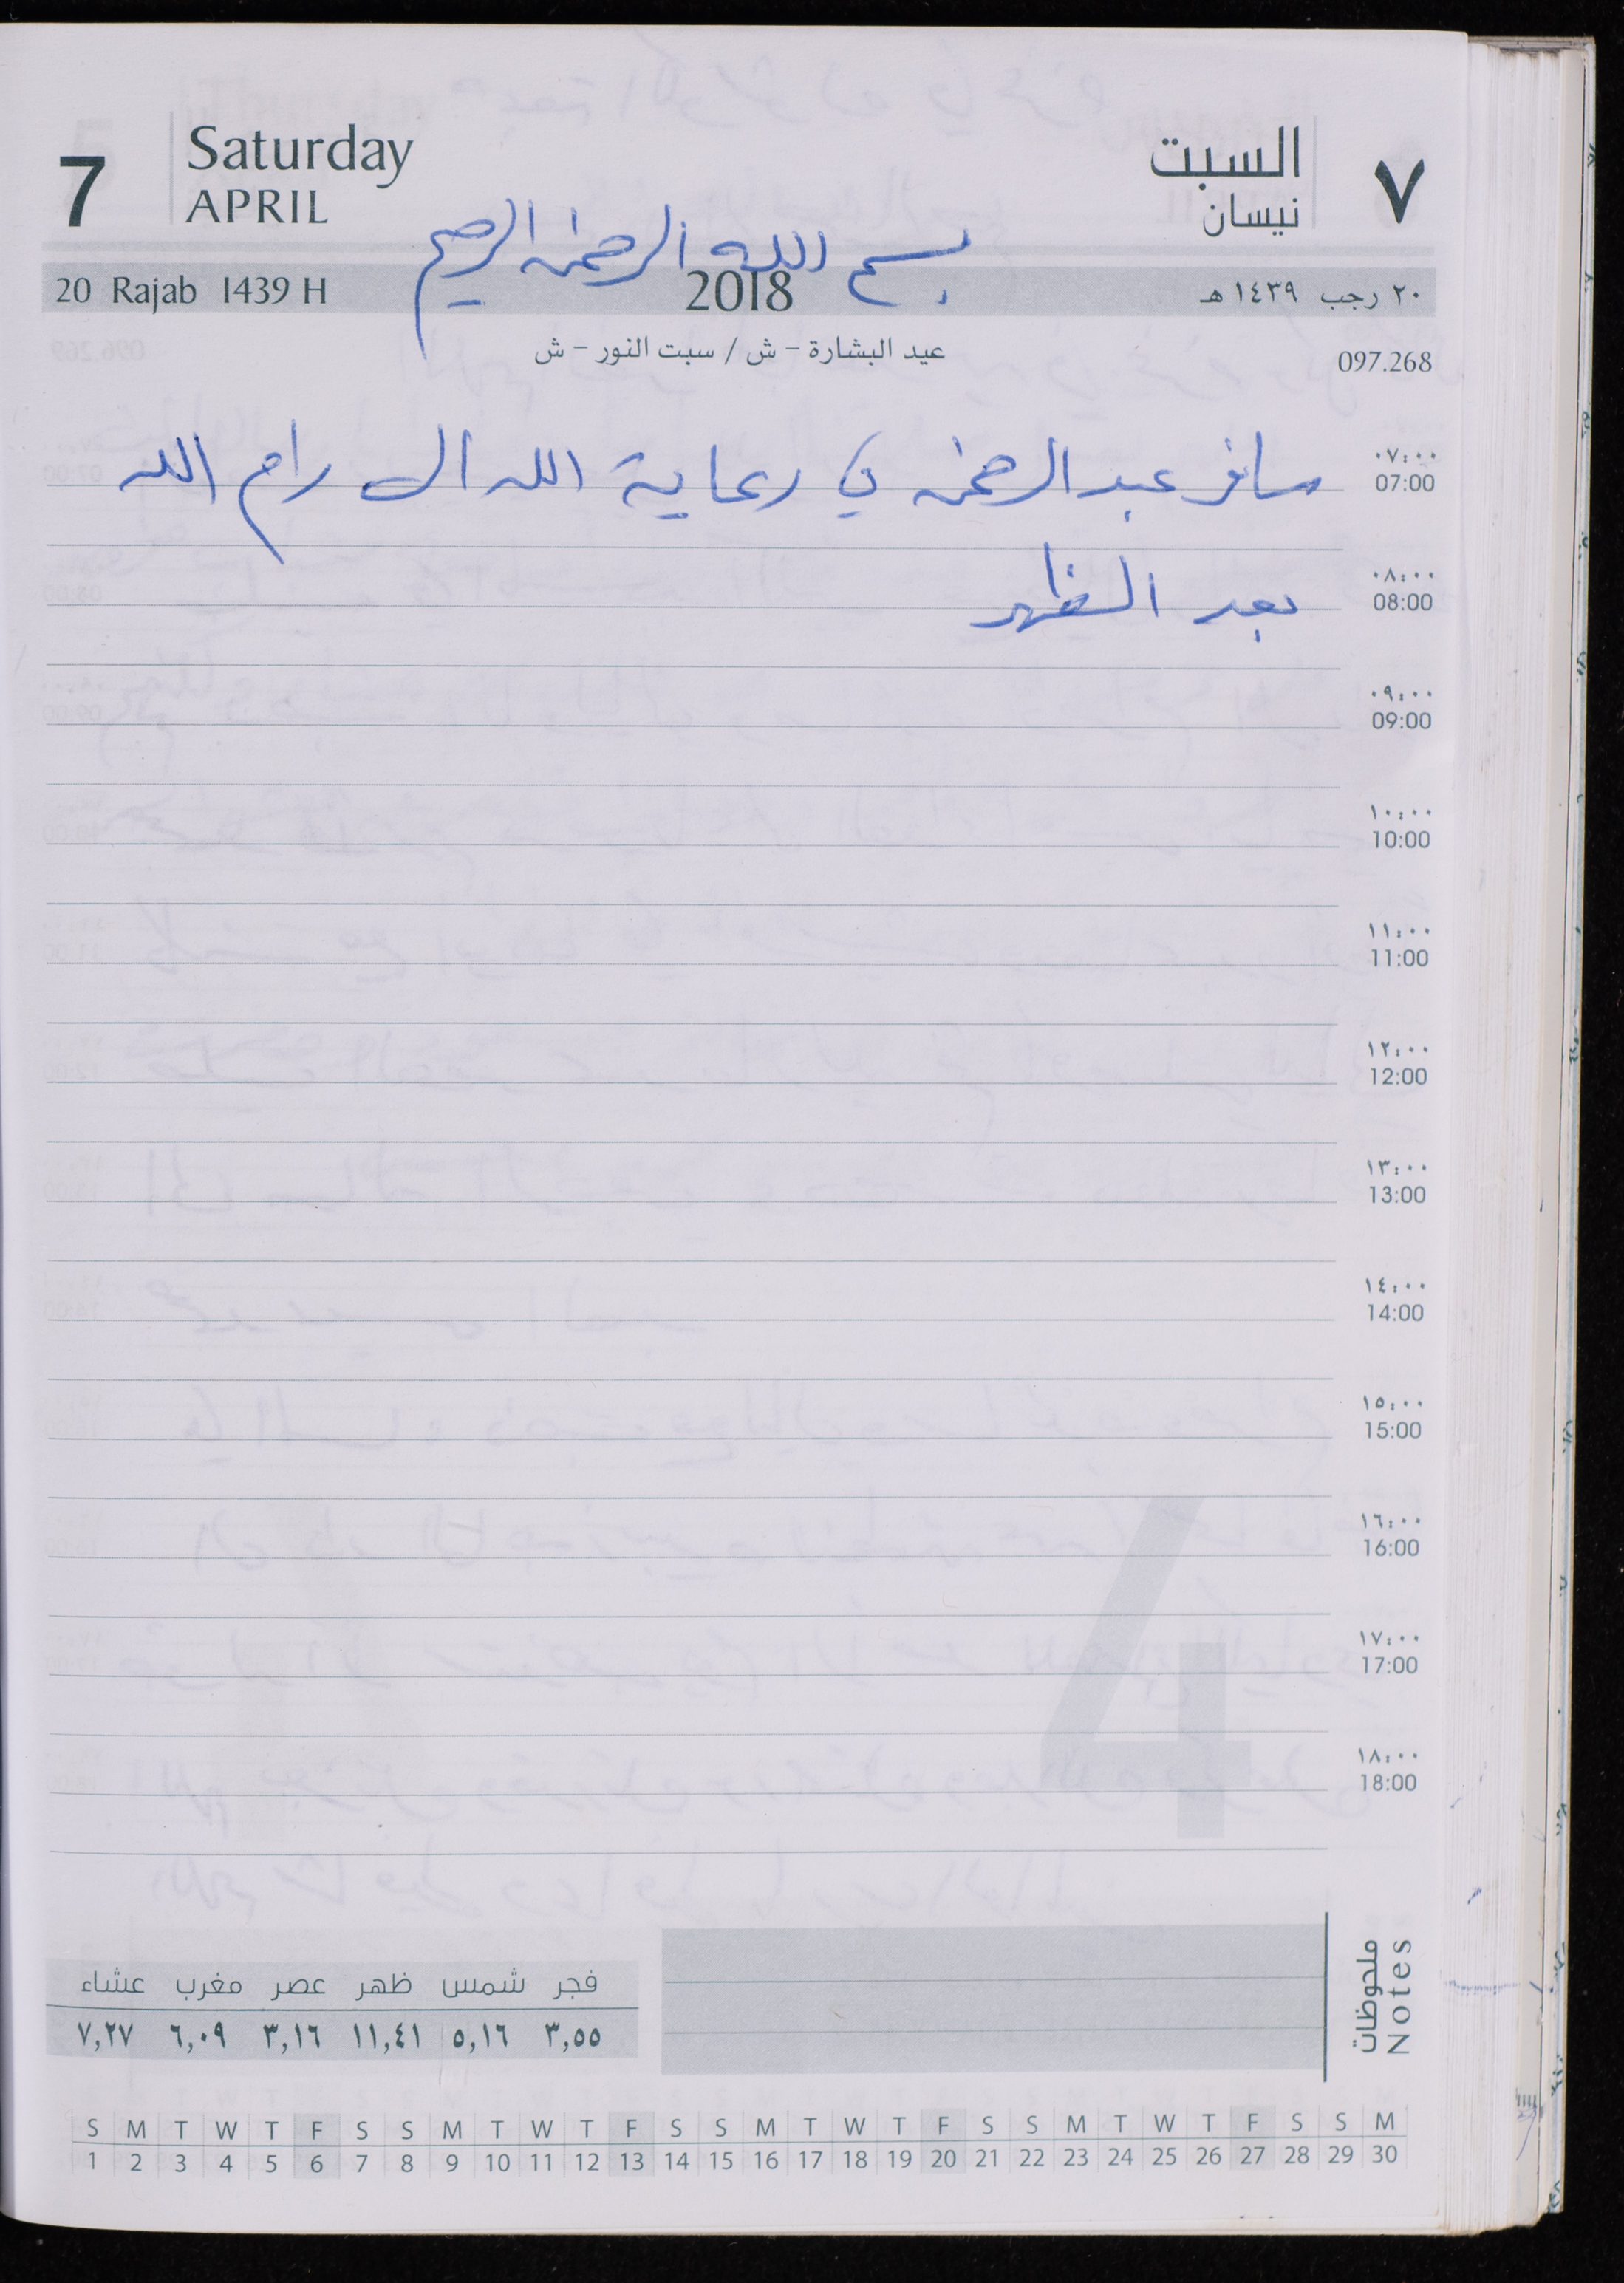 7 Saturday السبت ٧
APRIL نيسان
بسم الله الرحمن الرحيم
20 Rajab 1439 H 2018 ٢٠ رجب ١٤٣٩ هـ
عيد البشارة - ش / سبت النور - ش 097.268
٠٧:٠٠
07:00 سافر عبد الرحمن في رعاية الله الى رام الله
٠٨:٠٠
08:00 بعد الظهر
٠٩:٠٠
09:00
١٠:٠٠
10:00
١١:٠٠
11:00
١٢:٠٠
12:00
١٣:٠٠
13:00
١٤:٠٠
14:00
١٥:٠٠
15:00
١٦:٠٠
16:00
١٧:٠٠
17:00
١٨:٠٠
18:00
4
ملحوظات
Notes
فجر شمس ظهر عصر مغرب عشاء
٣,٥٥ ٥,١٦ ١١,٤١ ٣,١٦ ٦,٠٩ ٧,٢٧
S M T W T F S S M T W T F S S M T W T F S S M T W T F S S M
1 2 3 4 5 6 7 8 9 10 11 12 13 14 15 16 17 18 19 20 21 22 23 24 25 26 27 28 29 30